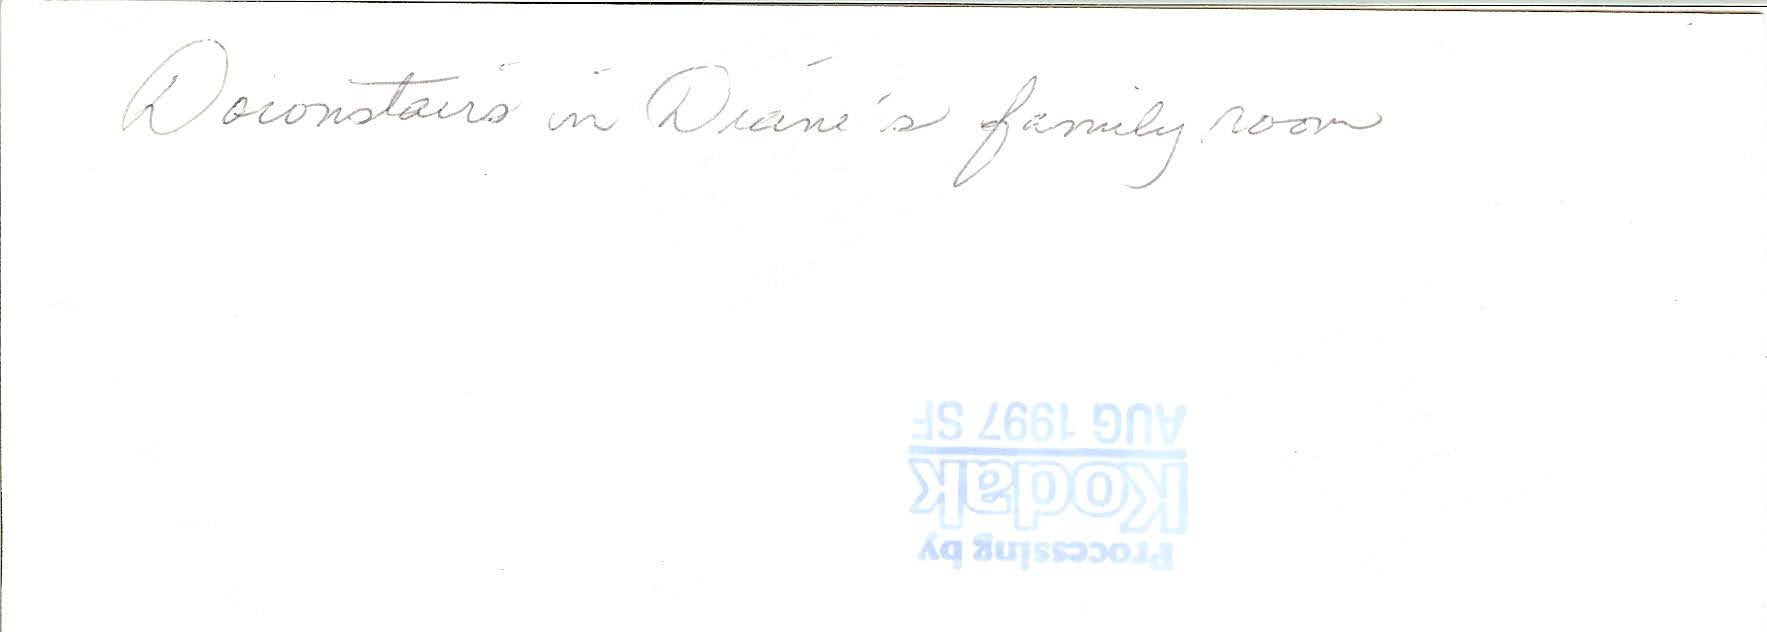 Downstairs in Diane's family room
Processing by
Kodak
AUG 1997 SF